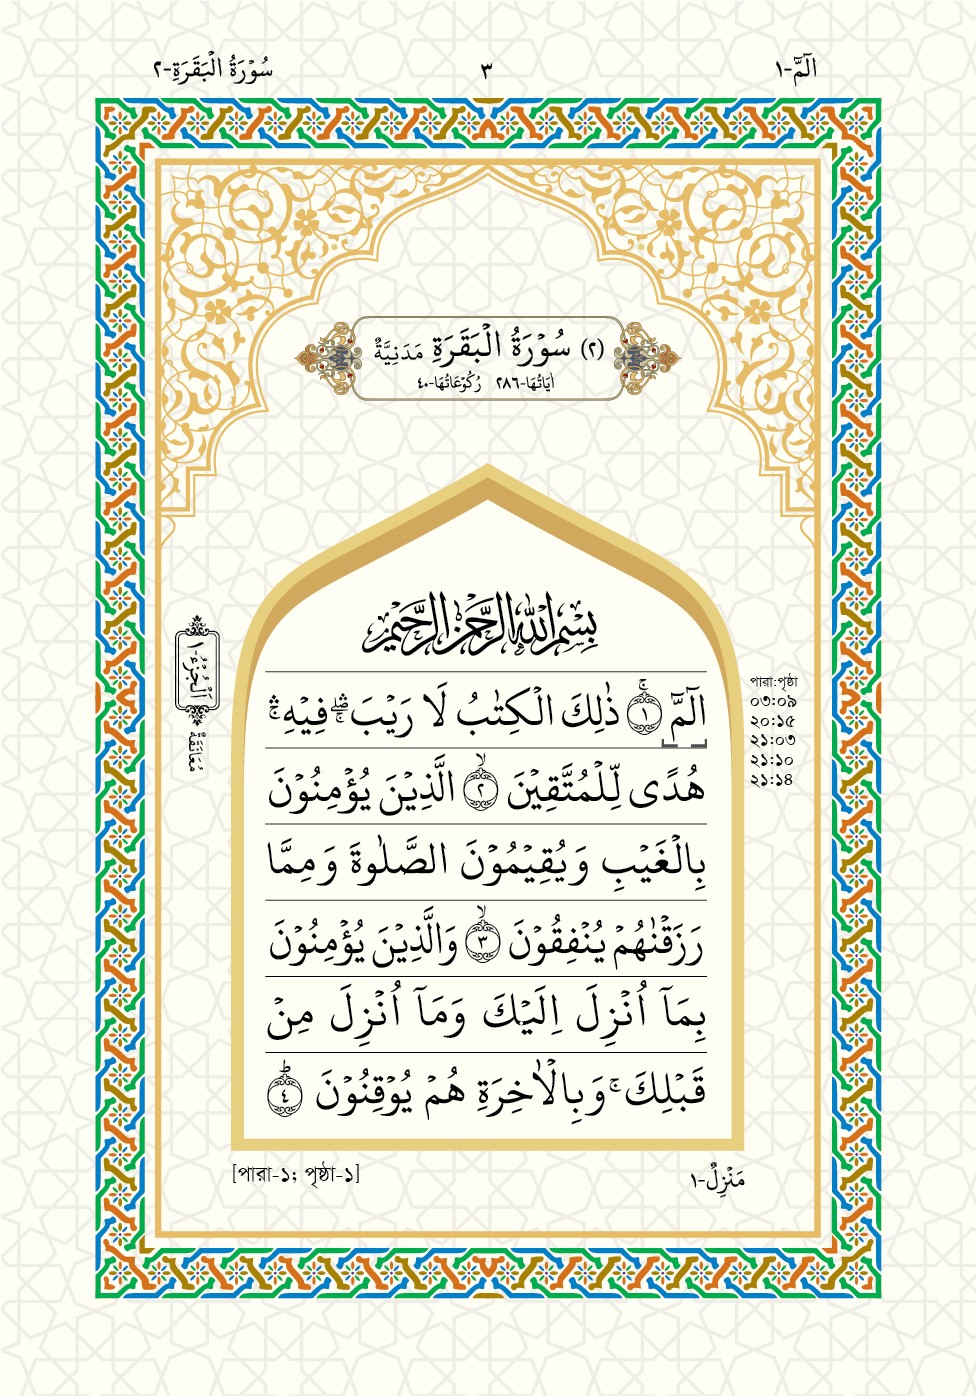 الٓمّٓ-١
٣
سُوْرَةُ الْبَقَرَةِ-٢
(٢) سُوْرَةُ الْبَقَرَةِ مَدَنِيَّةٌ
اٰيَاتُهَا-٢٨٦ رُكُوْعَاتُهَا-٤٠
بِسْمِ اللّٰهِ الرَّحْمٰنِ الرَّحِيْمِ
الٓمّٓ ۚ﴿١﴾ ذٰلِكَ الْكِتٰبُ لَا رَيْبَ ۛۖ فِيْهِ ۛۚ
هُدًى لِّلْمُتَّقِيْنَ ۙ﴿٢﴾ الَّذِيْنَ يُؤْمِنُوْنَ
بِالْغَيْبِ وَيُقِيْمُوْنَ الصَّلٰوةَ وَمِمَّا
رَزَقْنٰهُمْ يُنْفِقُوْنَ ۙ﴿٣﴾ وَالَّذِيْنَ يُؤْمِنُوْنَ
بِمَآ اُنْزِلَ اِلَيْكَ وَمَآ اُنْزِلَ مِنْ
قَبْلِكَ ۚ وَبِالْاٰخِرَةِ هُمْ يُوْقِنُوْنَ ؕ﴿٤﴾
পারা:পৃষ্ঠা
০৩:০৯
২০:১৫
২১:০৩
২১:১০
২১:১৪
اَلْجُزْءُ-١
مُعَانَقَةٌ
مَنْزِلٌ-١
[পারা-১; পৃষ্ঠা-১]